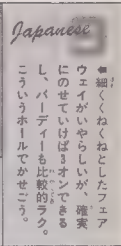 Japanese
●細くくねくねとしたフェア
ウェイがいやらしいが、確実
にのせていけば3オンできる
し、バーディーも比較的ラク。
こういうホールでかせごう。